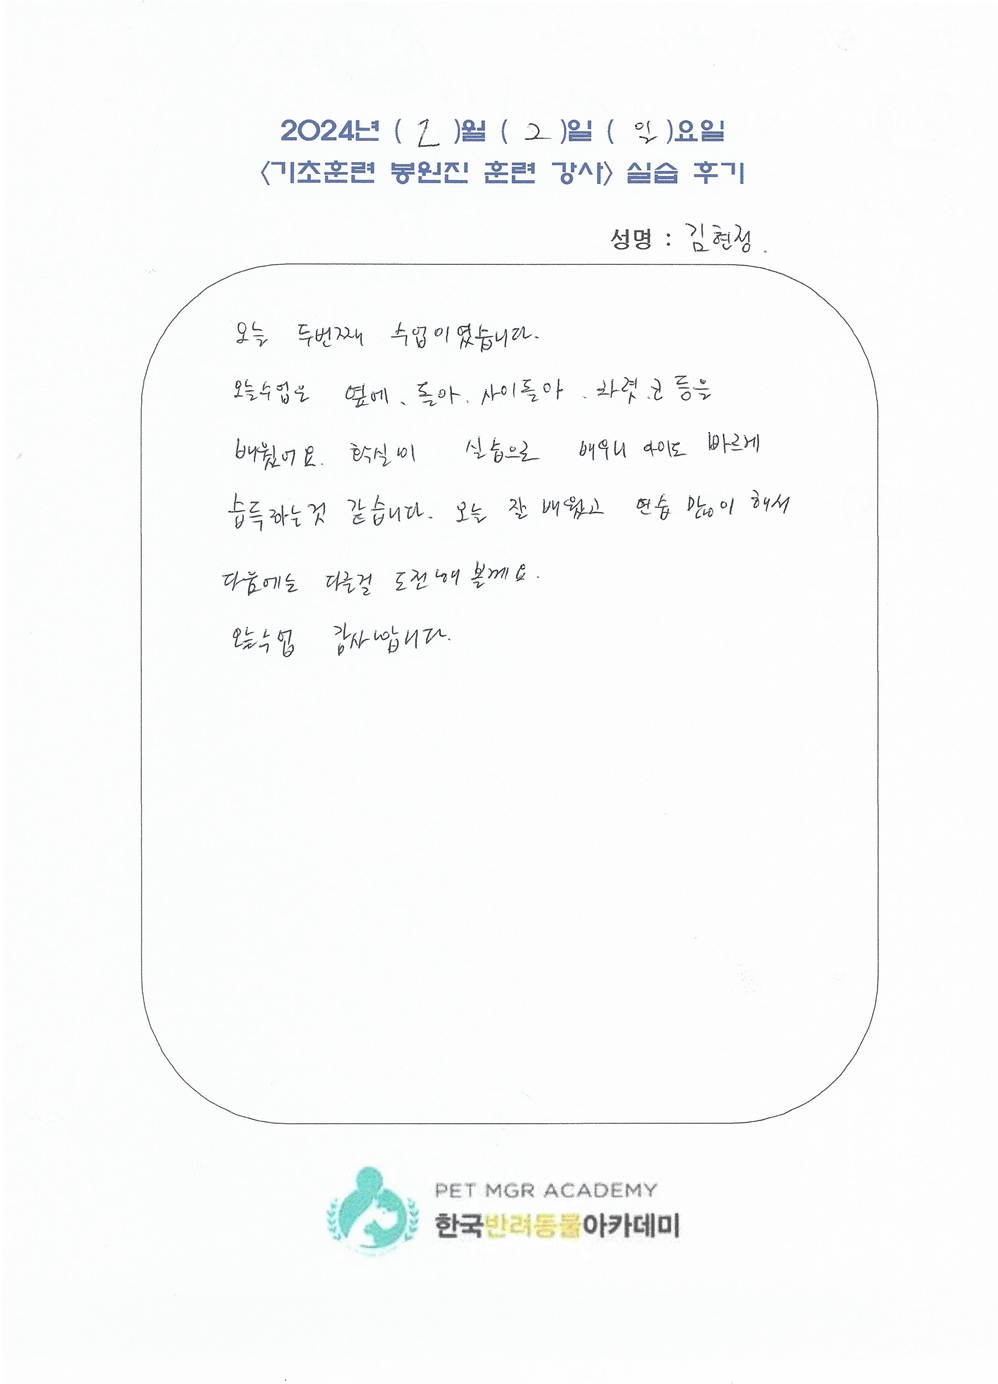 2024년 ( )월 ( 2 )일 ( 일 )요일
<기초훈련 봉원진 훈련 강사> 실습 후기
성명 : 김현정.
오늘 두번째 수업이였습니다.
오늘수업은 옆에, 돌아, 사이돌아, 차렷,코 등을
배웠어요. 확실히 실습으로 배우니 아이도 빠르게
습득하는것 같습니다. 오늘 잘 배웠고 연습 많이 해서
다음에는 다른걸 도전해 볼께요.
오늘수업 감사합니다.
PET MGR ACADEMY
한국반려동물아카데미